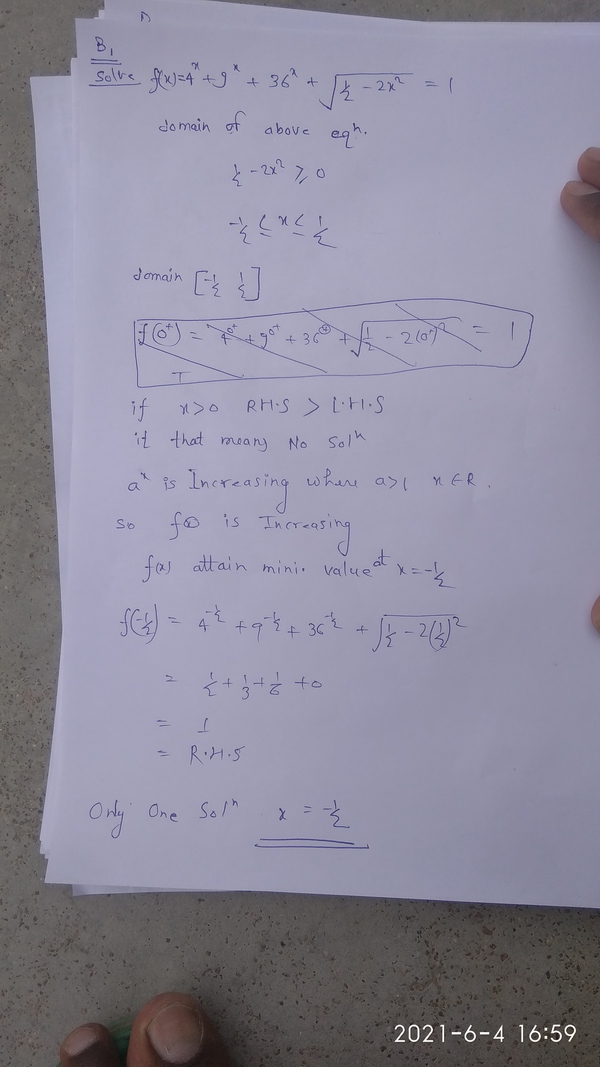 B₁
Solve f(x)=4^x + 9^x + 36^x + √(1/2 - 2x²) = 1
domain of above eqⁿ.
1/2 - 2x² ≥ 0
-1/2 ≤ x ≤ 1/2
domain [-1/2 1/2]
f(0⁺) = 4^0⁺ + 9^0⁺ + 36^0⁺ + √(1/2 - 2(0⁺)²) = 1
I
if x>0 RH.S > L.H.S
it that means No Solⁿ
a^x is Increasing where a>1 x∈R.
so f(x) is Increasing
f(x) attain mini. value at x = -1/2
f(-1/2) = 4^-1/2 + 9^-1/2 + 36^-1/2 + √(1/2 - 2(1/2)²)
= 1/2 + 1/3 + 1/6 + 0
= 1
= R.H.S
Only One Solⁿ x = -1/2
2021-6-4 16:59